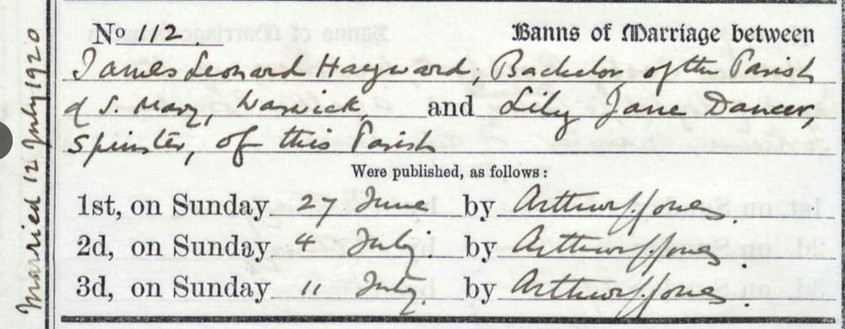 Married 12 July 1920
No 112. Banns of Marriage between
James Leonard Hayward, Bachelor of this Parish
of S. Mary, Warwick, and Lily Jane Dancer,
Spinster, of this Parish
Were published, as follows:
1st, on Sunday 27 June by Arthur J. Jones.
2d, on Sunday 4 July by Arthur J. Jones.
3d, on Sunday 11 July. by Arthur J. Jones.